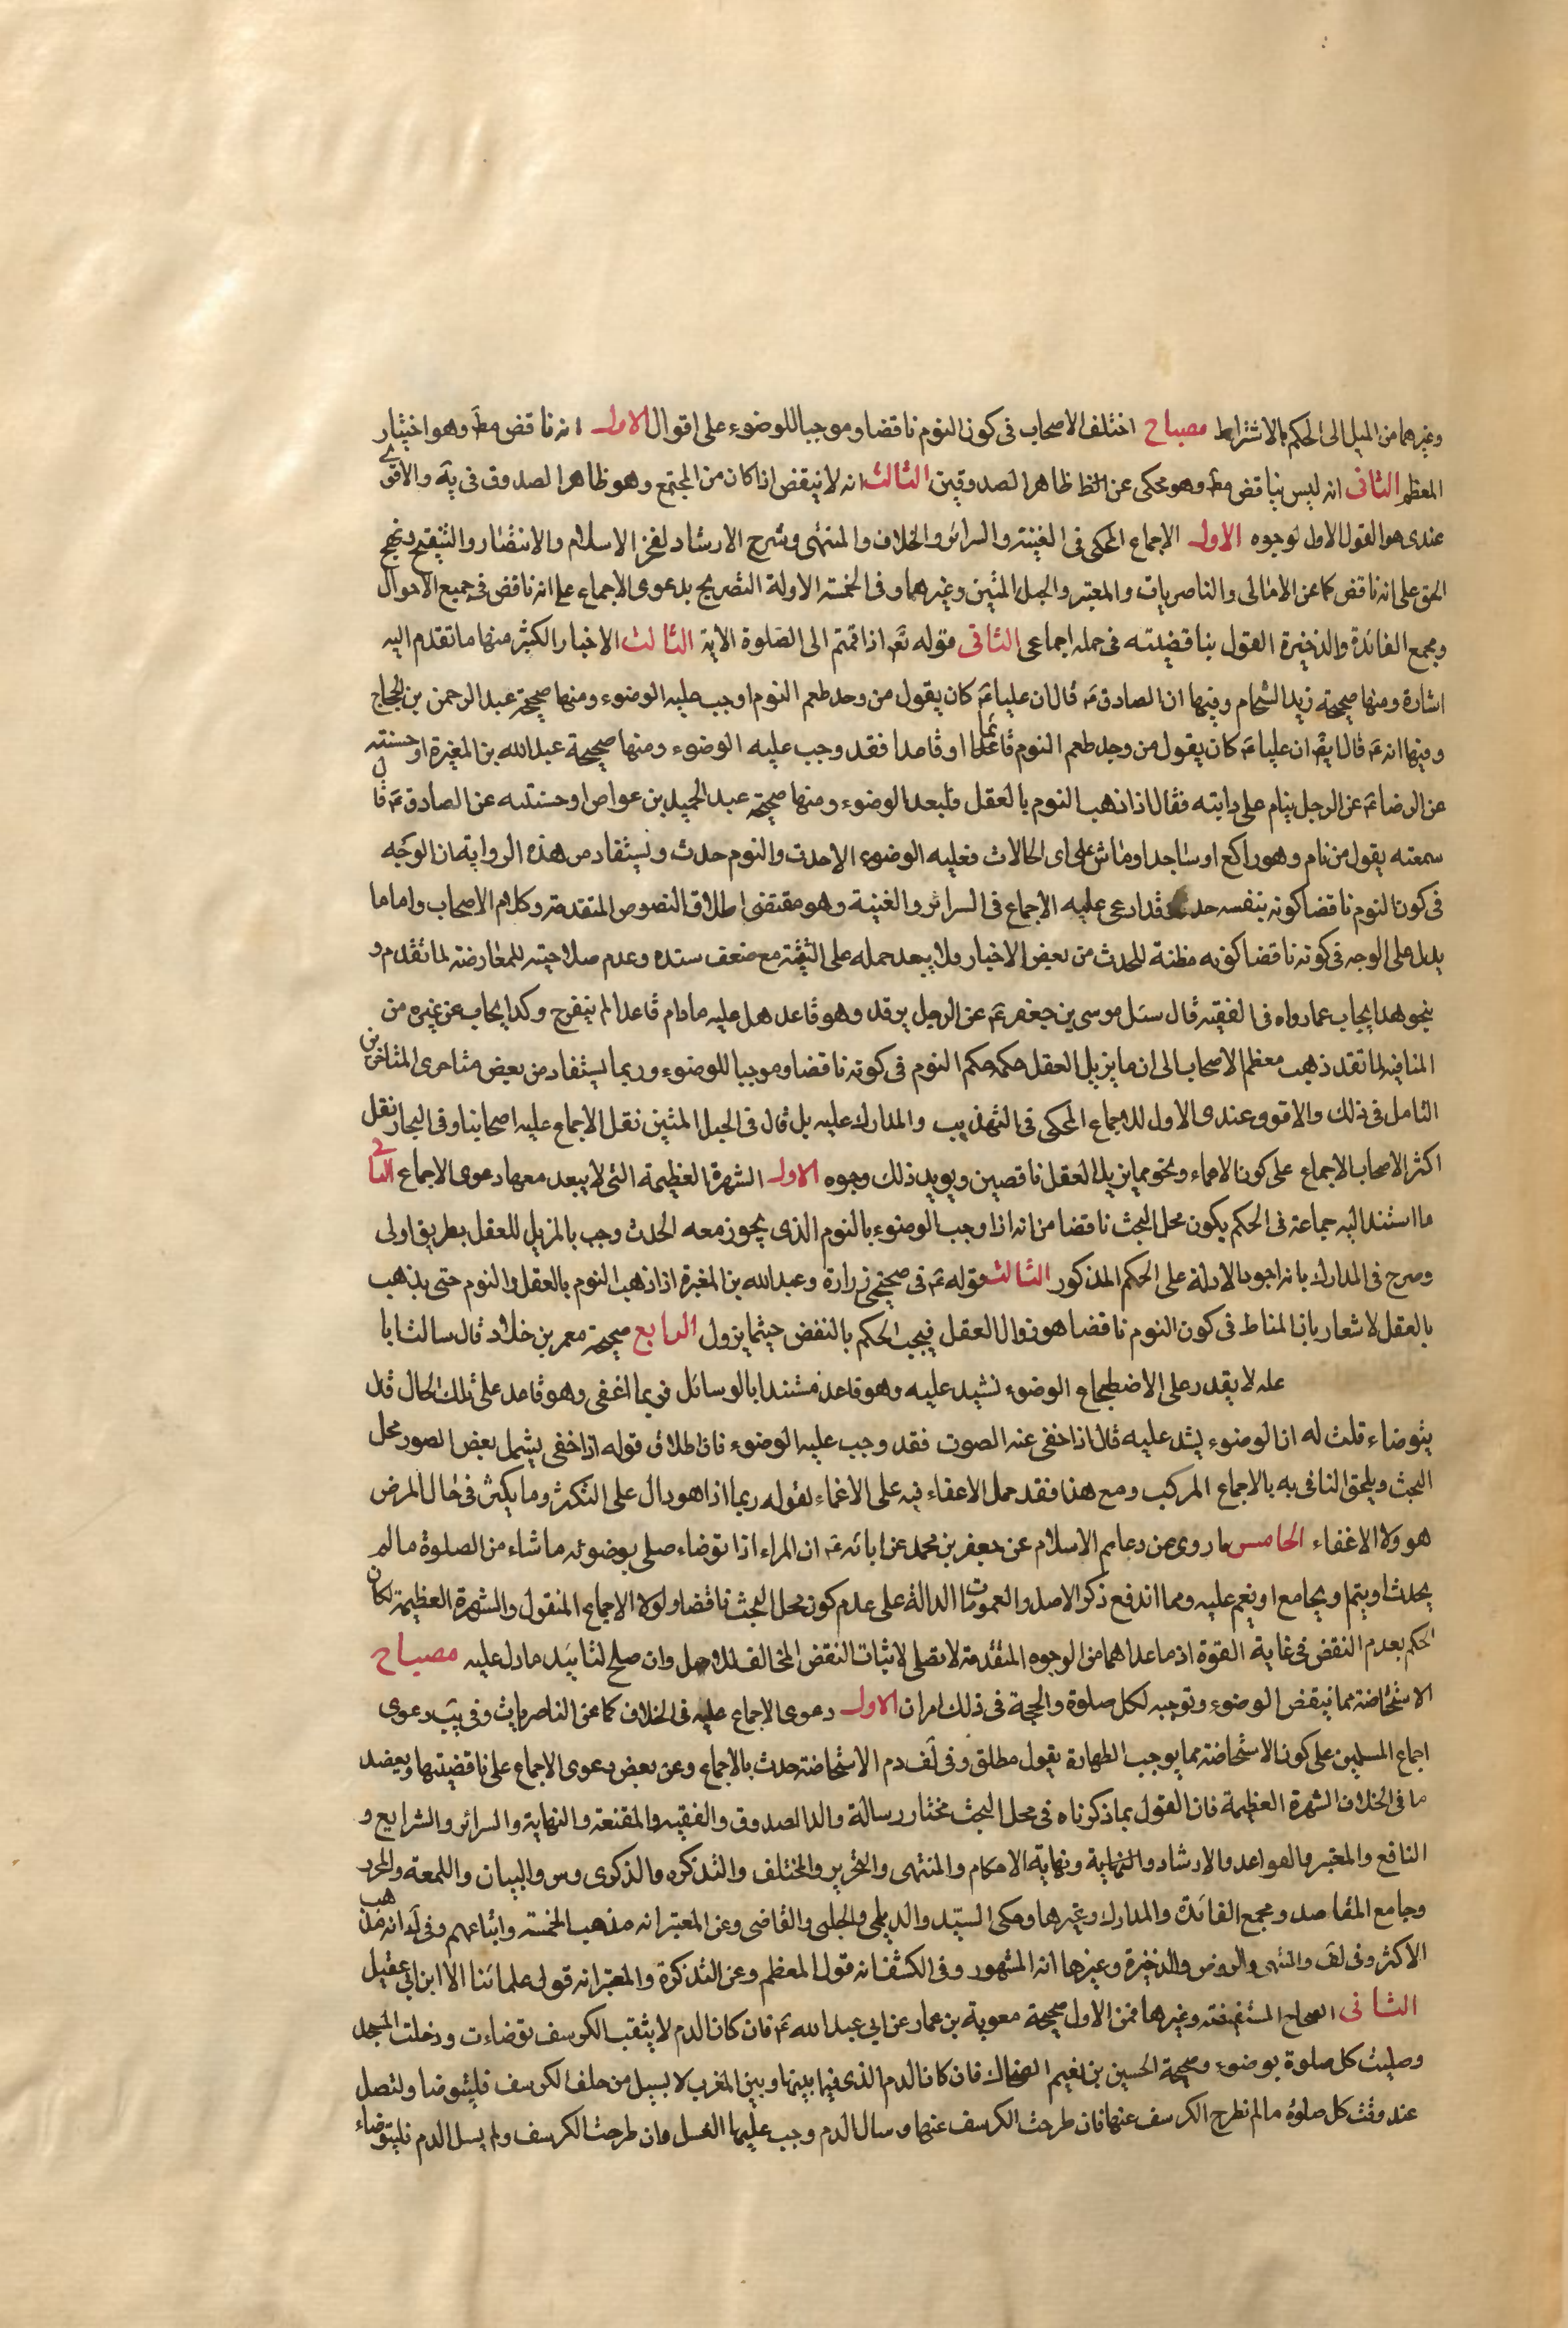 وغيرهما من الميل الى الحكم بالاشتراط مصباح اختلف الاصحاب فى كون النوم ناقضا وموجبا للوضوء على اقوال الاول انه ناقض مط وهو اختيار
المعظم الثانى انه ليس بناقض مط وهو محكى عن ظاهر الصدوقين الثالث انه لا ينقض اذا كان من المجتمع وهو ظاهر الصدوق فى يه والاقوى
عندى هو القول الاول لوجوه الاول الاجماع المحكى فى الغنية والسرائر والخلاف والمنتهى وشرح الارشاد لفخر الاسلام والانتصار والتنقيح ونهج
الحق على انه ناقض كما عن الامالى والناصريات والمعتبر والحبل المتين وغيرهما وفى الخمسة الاولة التصريح بدعوى الاجماع على انه ناقض فى جميع الاحوال
ومجمع الفائدة والذخيرة القول بناقضيته فى جملة اجماعى الثانى قوله تع اذا قمتم الى الصلوة الاية الثالث الاخبار الكثير منها ما تقدم اليه
اشارة ومنها صحيحة زيد الشحام وفيها ان الصادق ع قال ان عليا ع كان يقول من وجد طعم النوم اوجب عليه الوضوء ومنها صحيحة عبد الرحمن بن الحجاج
وفيها انه ع قال ان عليا ع كان يقول من وجد طعم النوم قائما او قاعدا فقد وجب عليه الوضوء ومنها صحيحة عبد الله بن المغيرة او حسنته
عن الرضا ع عن الرجل ينام على دابته فقال اذا ذهب النوم بالعقل فليعد الوضوء ومنها صحيحة عبد الحميد بن عواص او حسنته عن الصادق ع قال
سمعته يقول من نام وهو راكع او ساجد او ماش على اى الحالات فعليه الوضوء الاحدث والنوم حدث ويستفاد من هذه الرواية ان الوجه
فى كون النوم ناقضا كونه بنفسه حدث قد ادعى عليه الاجماع فى السرائر والغنية وهو مقتضى اطلاق النصوص المتقدمة وكلام الاصحاب واما ما
يدل على الوجه فى كونه ناقضا كونه مظنة للحدث من بعض الاخبار فلا يبعد حمله على التقية مع ضعف سنده وعدم صلاحيته للمعارضة لما تقدم و
بنحو هذا يجاب عما رواه فى الفقيه قال سئل موسى بن جعفر ع عن الرجل يرقد وهو قاعد هل عليه مادام قاعدا لم ينفرج وكذا يجاب عن غيره من
المنافية لما تقد ذهب معظم الاصحاب الى ان ما يزيل العقل حكمه حكم النوم فى كونه ناقضا وموجبا للوضوء وربما يستفاد من بعض متاخرى المتاخرين
التامل فى ذلك والاقوى عندى الاول للاجماع المحكى فى التهذيب والمدارك عليه بل قال فى الحبل المتين نقل الاجماع عليه اصحابنا وفى البحار نقل
اكثر الاصحاب الاجماع على كون الاغماء ونحو مما يزيل العقل ناقضين ويويد ذلك وجوه الاول الشهرة العظيمة التى لا يبعد معها دعوى الاجماع الثانى
ما استند اليه جماعة فى الحكم يكون محل البحث ناقضا من انه اذا وجب الوضوء بالنوم الذى يجوز معه الحدث وجب بالمزيل للعقل بطريق اولى
وصرح فى المدارك بانه اجود الادلة على الحكم المذكور الثالث قوله ع فى صحيحى زرارة وعبد الله بن المغيرة اذا ذهب النوم بالعقل والنوم حتى يذهب
بالعقل لاشعار بان المناط فى كون النوم ناقضا هو زوال العقل فيجب الحكم بالنقض حيثما يزول الرابع صحيحة معمر بن خلاد قال سالت ابا
عله لا يقدر على الاضطجاع الوضوء تشيد عليه وهو قاعد مستند بالوسائل فربما اغفى وهو قاعد على تلك الحال قال
يتوضاء قلت له ان الوضوء يشد عليه قال اذا خفى عنه الصوت فقد وجب عليه الوضوء فان اطلاق قوله اذا خفى يشمل بعض الصور محل
البحث ويلحق النافى به بالاجماع المركب ومع هذا فقد حمل الاغفاء فيه على الاغماء لقوله ربما اذ هو دال على التكثر وما يكثر فى حال المرض
هو ولا الاغفاء الخامس ما روى من دعايم الاسلام عن جعفر بن محمد عن ابائه ع ان المراء اذا توضاء صلى بوضوئه ما شاء من الصلوة ما لم
يحدث او ينم او يجامع او يغم عليه ومما اندفع ذكر الاصل والعمومات الدالة على عدم كون محل البحث ناقضا ولولا الاجماع المنقول والشهرة العظيمة لكان
الحكم بعدم النقض فى غاية القوة اذ ما عداهما من الوجوه المتقدمة لا تصلى لاثبات النقض المخالف للاصل وان صلح لتائيد ما دل عليه مصباح
الاستحاضة مما ينقض الوضوء وتوجبه لكل صلوة والحجة فى ذلك امران الاول دعوى الاجماع عليه فى الخلاف كما عن الناصريات وفى يب دعوى
اجماع المسلمين على كون الاستحاضة مما يوجب الطهارة يقول مطلق وفى لف دم الاستحاضة حدث بالاجماع وعن بعض دعوى الاجماع على ناقضيتها ويعضد
ما فى الخلاف الشهرة العظيمة فان القول بما ذكرناه فى محل البحث مختار رسالة والد الصدوق والفقيه والمقنعة والنهاية والسرائر والشرايع و
النافع والمعتبر والقواعد والارشاد والنهاية ونهاية الاحكام والمنتهى والتحرير والمختلف والتذكره والذكرى وس والبيان واللمعة والمحرر
وجامع المقاصد ومجمع الفائدة والمدارك وغيرها وحكى السيد والديلمى والحلبى والقاضى وعن المعتبر انه مذهب الخمسة واتباعهم وفى ك انه مذهب
الاكثر وفى لف والمنتهى والروض والذخيرة وغيرها انه المشهور وفى الكشف انه قول المعظم وعن التذكرة والمعتبر انه قول علمائنا الا ابن ابى عقيل
الثانى الصحاح المستفيضة وغيرها فمن الاول صحيحة معوية بن عمار عن ابى عبد الله ع فان كان الدم لا يثقب الكرسف توضات ودخلت المسجد
وصليت كل صلوة بوضوء وصحيحة الحسين بن نعيم الصحاف فان كان الدم الذى فيما بينها وبين المغرب لا يسيل من خلف الكرسف فليتوضا ولتصل
عند وقت كل صلوة ما لم تطرح الكرسف عنها فان طرحت الكرسف عنها وسال الدم وجب عليها الغسل وان طرحت الكرسف ولم يسل الدم فليتوضاء